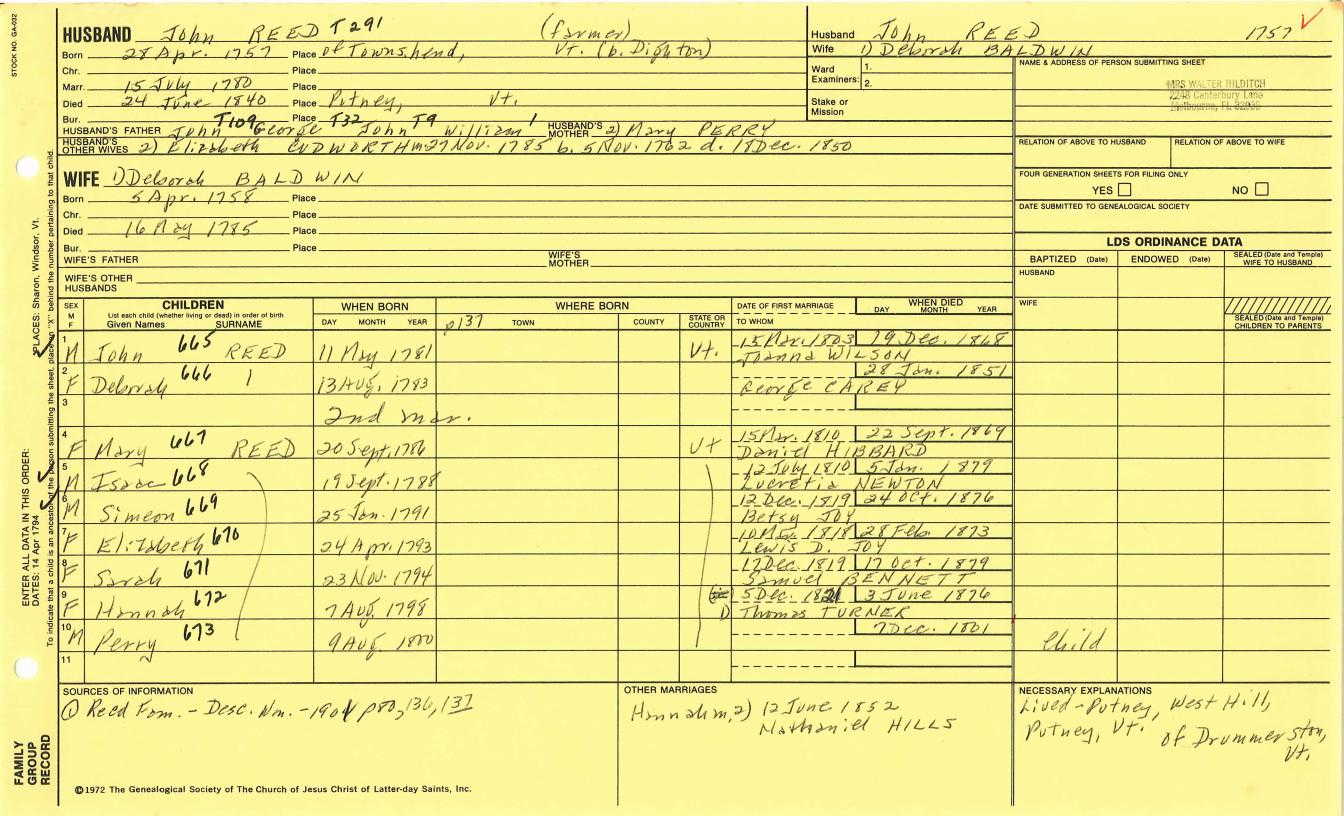 STOCK NO. GA-032
HUSBAND John REED T291 (farmer)
Born 28 Apr. 1757 Place of Townshend, Vt. (b. Dighton)
Chr. Place
Marr. 15 July 1780 Place
Died 24 June 1840 Place Putney, Vt.
Bur. Place
HUSBAND'S FATHER John T109 George T32 John T9 William 1 HUSBAND'S MOTHER 2) Mary PERRY
HUSBAND'S OTHER WIVES 2) Elizabeth CUDWORTH m27 Nov. 1785 b. 5 Nov. 1762 d. 18 Dec. 1850
Husband John REED 1757
Wife 1) Deborah BALDWIN
Ward Examiners: 1.
2.
Stake or Mission
NAME & ADDRESS OF PERSON SUBMITTING SHEET
MRS WALTER HILDITCH
2248 Canterbury Lane
Melbourne, FL
RELATION OF ABOVE TO HUSBAND RELATION OF ABOVE TO WIFE
FOUR GENERATION SHEETS FOR FILING ONLY
YES NO
DATE SUBMITTED TO GENEALOGICAL SOCIETY
WIFE 1) Deborah BALDWIN
Born 5 Apr. 1758 Place
Chr. Place
Died 16 May 1785 Place
Bur. Place
WIFE'S FATHER WIFE'S MOTHER
WIFE'S OTHER HUSBANDS
LDS ORDINANCE DATA
BAPTIZED (Date) ENDOWED (Date) SEALED (Date and Temple) WIFE TO HUSBAND
HUSBAND
WIFE
SEALED (Date and Temple) CHILDREN TO PARENTS
SEX M F CHILDREN List each child (whether living or dead) in order of birth Given Names SURNAME
WHEN BORN DAY MONTH YEAR
WHERE BORN p137 TOWN COUNTY STATE OR COUNTRY
DATE OF FIRST MARRIAGE TO WHOM
WHEN DIED DAY MONTH YEAR
1 M John 665 REED 11 May 1781 Vt. 15 Mar. 1803 19 Dec. 1868
Joanna WILSON
2 F Deborah 666 13 Aug. 1783 28 Jan. 1851
George CAREY
3 2nd mar.
4 F Mary 667 REED 20 Sept. 1786 Vt 15 Mar. 1810 22 Sept. 1869
Daniel HIBBARD
5 M Isaac 668 19 Sept. 1788 12 July 1810 5 Jan. 1879
Lucretia NEWTON
6 M Simeon 669 25 Jan. 1791 12 Dec. 1819 24 Oct. 1876
Betsy JOY
7 F Elizabeth 670 24 Apr. 1793 10 1818 28 Feb. 1873
Lewis D. JOY
8 F Sarah 671 23 Nov. 1794 17 Dec. 1819 17 Oct. 1879
Samuel BENNETT
9 F Hannah 672 7 Aug. 1798 5 Dec. 1821 3 June 1876
1) Thomas TURNER
10 M Perry 673 9 Aug. 1800 7 Dec. 1801 Child
11
SOURCES OF INFORMATION
① Reed Fam. - Desc. Wm. - 1901 136, 137
OTHER MARRIAGES
Hannah m. 2) 12 June 1852
Nathaniel HILLS
NECESSARY EXPLANATIONS
Lived - Putney, West Hill,
Putney, Vt. of Drummerston,
Vt.
©1972 The Genealogical Society of The Church of Jesus Christ of Latter-day Saints, Inc.
FAMILY GROUP RECORD
ENTER ALL DATA IN THIS ORDER:
DATES: 14 Apr 1794 PLACES: Sharon, Windsor, Vt.
To indicate that a child is an ancestor of the person submitting the sheet, place an "X" behind the number pertaining to that child.